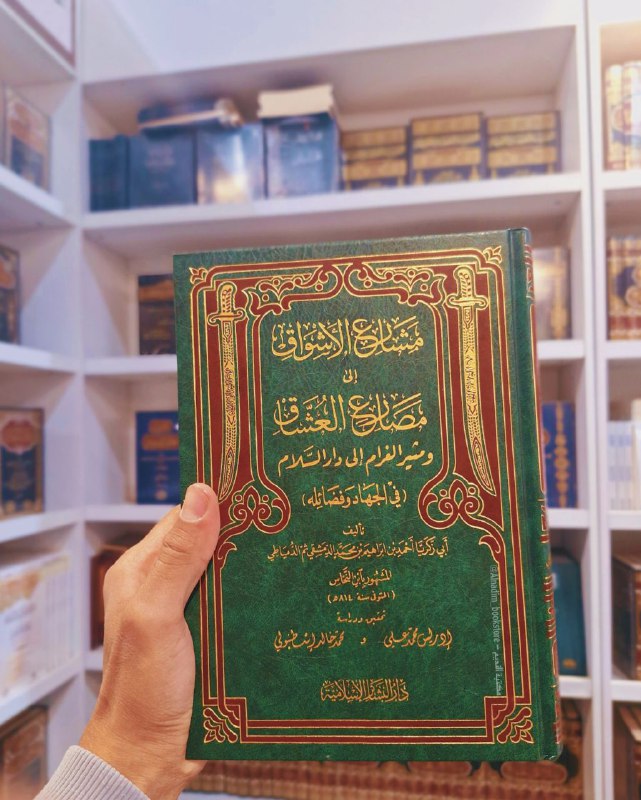 مشارع الأشواق
إلى
مصارع العشاق
ومثير الغرام إلى دار السلام
(في الجهاد وفضائله)
تأليف
أبي زكريا أحمد بن ابراهيم بن محمد الدمشقي ثم الدمياطي
المشهور بابن النحاس
(المتوفى سنة ٨١٤ هـ)
تحقيق ودراسة
إدريس محمد علي و محمد خالد إسطنبولي
دار البشائر الإسلامية
bookstore – مكتبة القديم